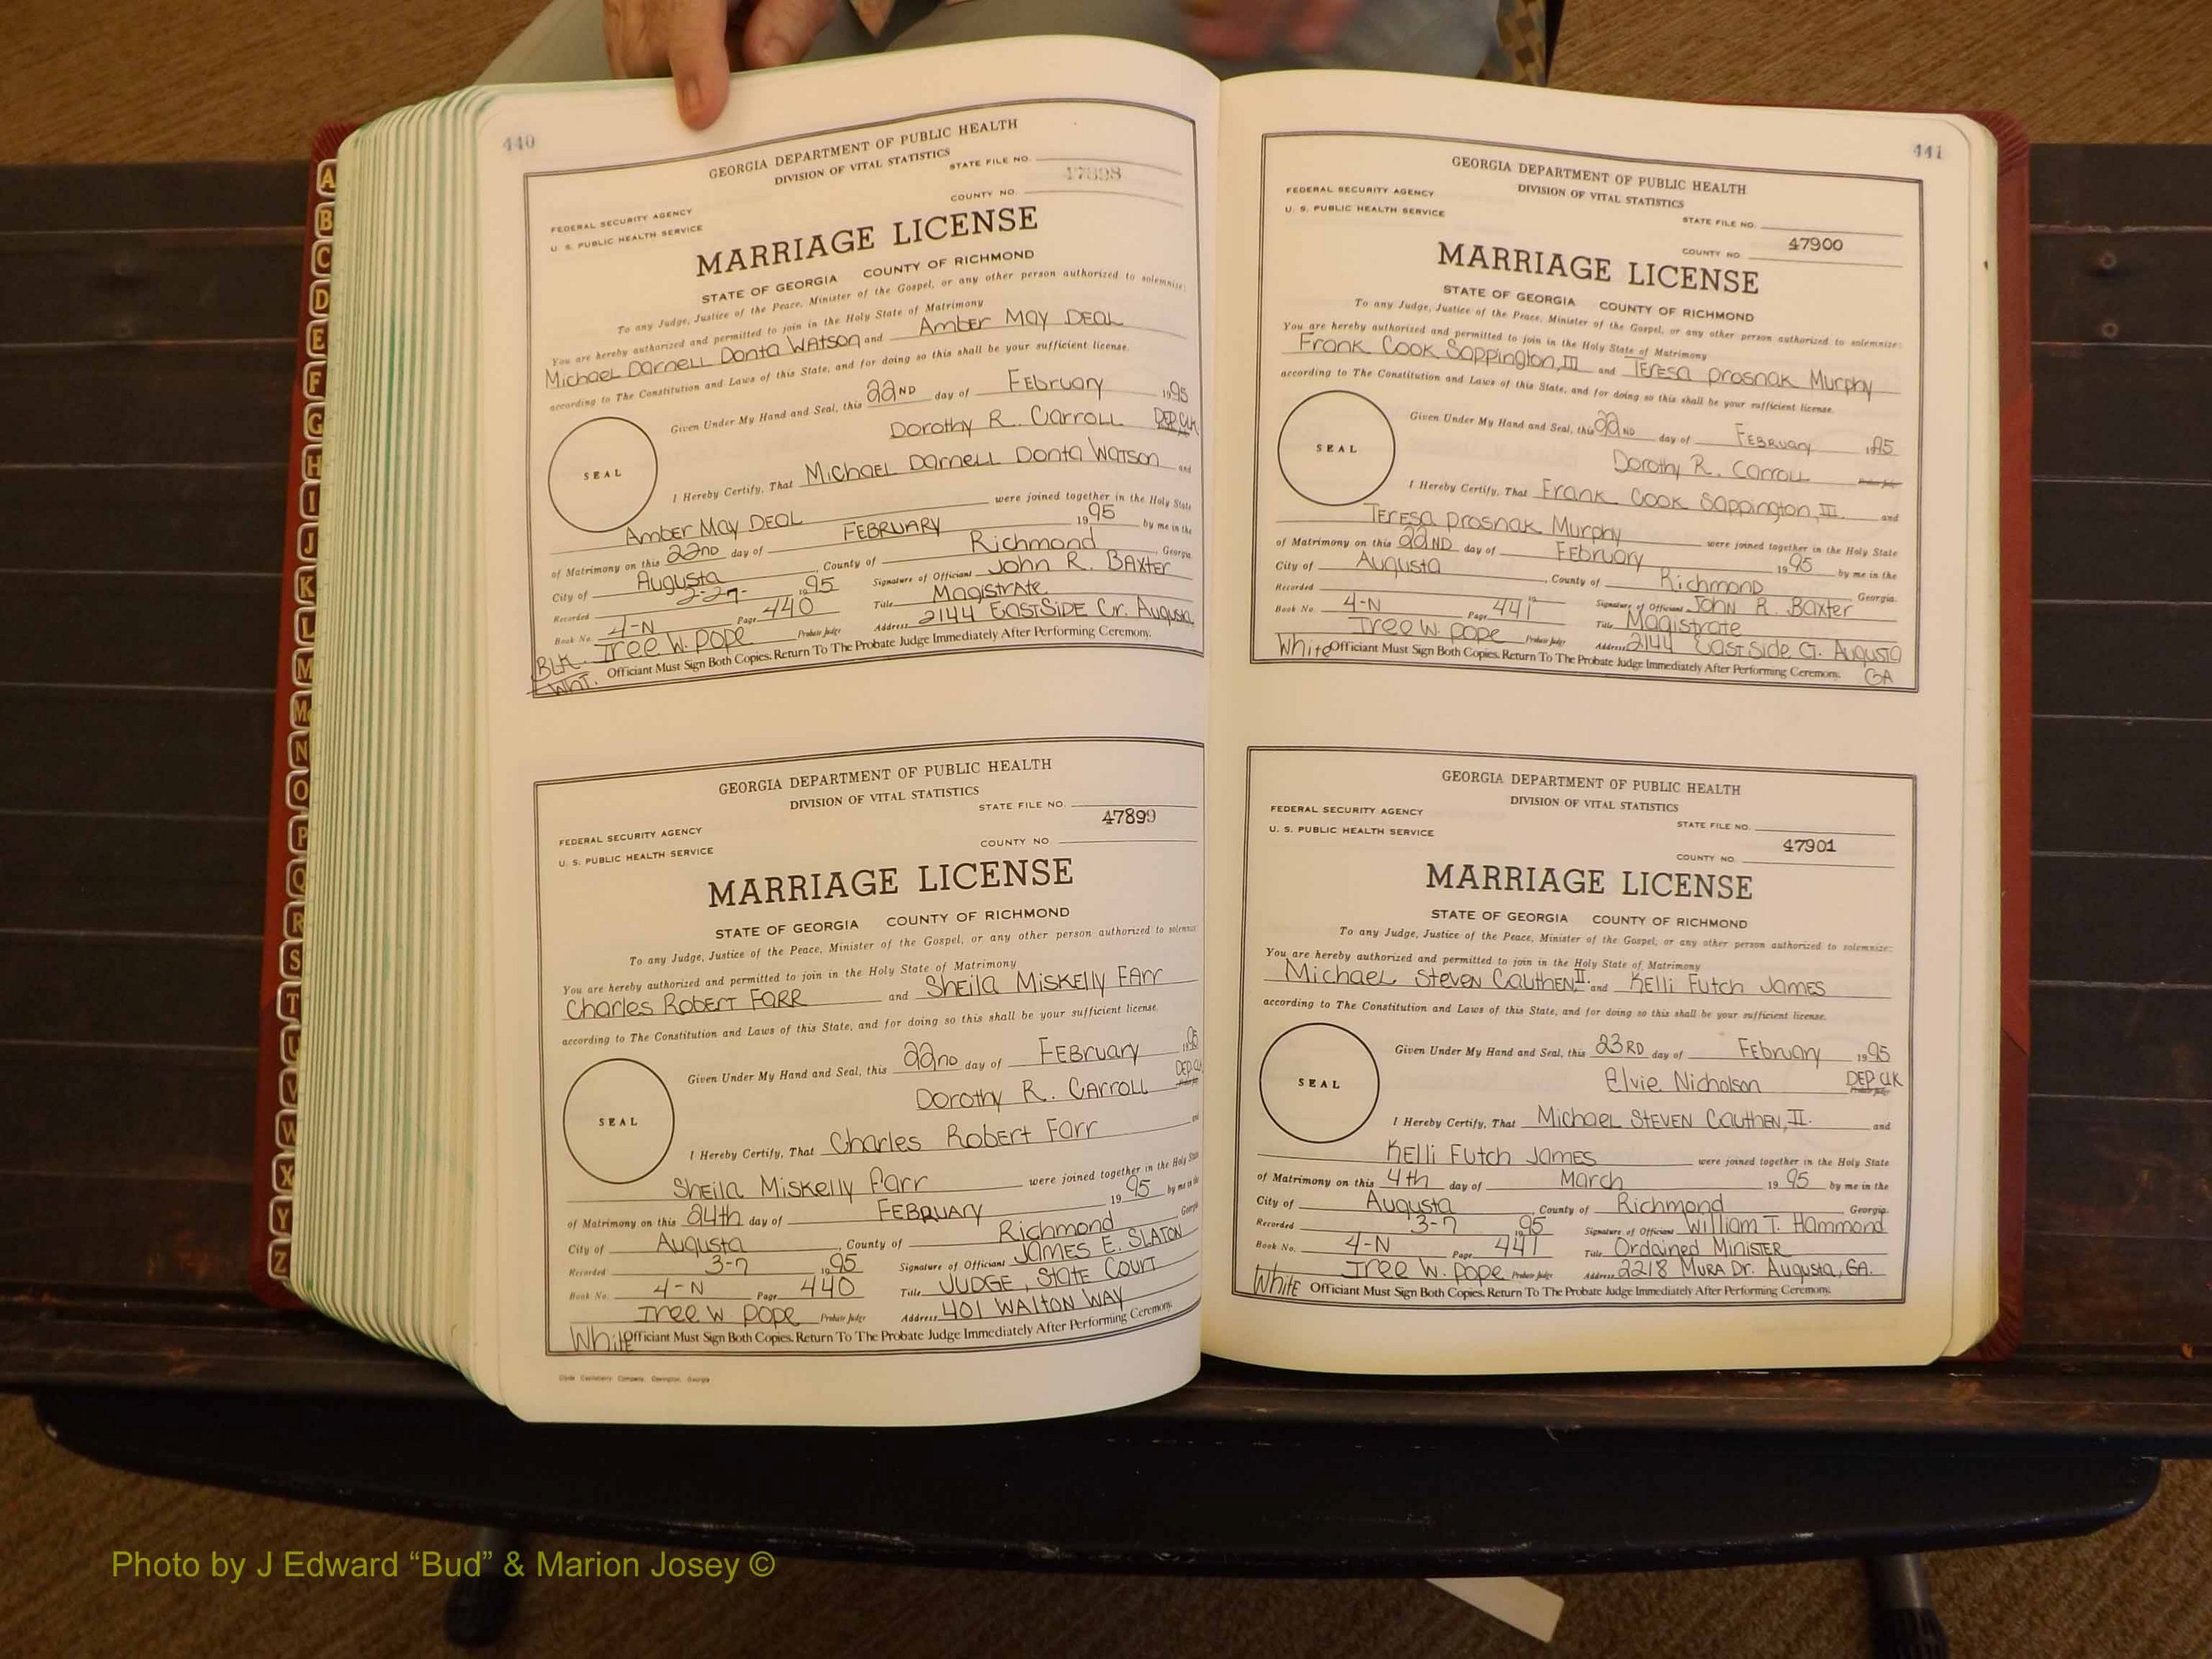 A
B
C
D
E
F
G
H
I
J
K
L
M
Mc
N
O
P
Q
R
S
T
U
V
W
X
Y
Z
440
GEORGIA DEPARTMENT OF PUBLIC HEALTH
DIVISION OF VITAL STATISTICS
STATE FILE NO.
47898
FEDERAL SECURITY AGENCY
COUNTY NO.
U. S. PUBLIC HEALTH SERVICE
MARRIAGE LICENSE
STATE OF GEORGIA COUNTY OF RICHMOND
To any Judge, Justice of the Peace, Minister of the Gospel, or any other person authorized to solemnize:
You are hereby authorized and permitted to join in the Holy State of Matrimony
Michael Darnell Donta Watson and Amber May Deal
according to The Constitution and Laws of this State, and for doing so this shall be your sufficient license.
Given Under My Hand and Seal, this 22ND day of February 1995
Dorothy R. Carroll DEP. CLK
SEAL
I Hereby Certify, That Michael Darnell Donta Watson and
Amber May Deal were joined together in the Holy State
of Matrimony on this 22nd day of FEBRUARY 1995 by me in the
City of Augusta, County of Richmond Georgia
Recorded 2-27- 1995 Signature of Officiant John R. Baxter
Book No. 4-N Page 440 Title Magistrate
Tree W. Pope Probate Judge Address 2144 Eastside Cr. Augusta
BLK. Officiant Must Sign Both Copies. Return To The Probate Judge Immediately After Performing Ceremony.
WHT.
GEORGIA DEPARTMENT OF PUBLIC HEALTH
DIVISION OF VITAL STATISTICS
STATE FILE NO.
47899
FEDERAL SECURITY AGENCY
COUNTY NO.
U. S. PUBLIC HEALTH SERVICE
MARRIAGE LICENSE
STATE OF GEORGIA COUNTY OF RICHMOND
To any Judge, Justice of the Peace, Minister of the Gospel, or any other person authorized to solemnize
You are hereby authorized and permitted to join in the Holy State of Matrimony
Charles Robert Farr and Sheila Miskelly Farr
according to The Constitution and Laws of this State, and for doing so this shall be your sufficient license.
Given Under My Hand and Seal, this 22nd day of February 1995
Dorothy R. Carroll DEP. CLK
SEAL
I Hereby Certify, That Charles Robert Farr and
Sheila Miskelly Farr were joined together in the Holy State
of Matrimony on this 24th day of FEBRUARY 1995 by me in the
City of Augusta, County of Richmond Georgia
Recorded 3-7 1995 Signature of Officiant James E. Slaton
Book No. 4-N Page 440 Title Judge, State Court
Tree W. Pope Probate Judge Address 401 Walton Way
White Officiant Must Sign Both Copies. Return To The Probate Judge Immediately After Performing Ceremony.
Clyde Castleberry Company, Covington, Georgia
441
GEORGIA DEPARTMENT OF PUBLIC HEALTH
DIVISION OF VITAL STATISTICS
FEDERAL SECURITY AGENCY
U. S. PUBLIC HEALTH SERVICE
STATE FILE NO.
47900
COUNTY NO.
MARRIAGE LICENSE
STATE OF GEORGIA COUNTY OF RICHMOND
To any Judge, Justice of the Peace, Minister of the Gospel, or any other person authorized to solemnize:
You are hereby authorized and permitted to join in the Holy State of Matrimony
Frank Cook Sappington, III and Teresa Prosnak Murphy
according to The Constitution and Laws of this State, and for doing so this shall be your sufficient license.
Given Under My Hand and Seal, this 22ND day of February 1995
Dorothy R. Carroll
SEAL
I Hereby Certify, That Frank Cook Sappington, III. and
Teresa Prosnak Murphy were joined together in the Holy State
of Matrimony on this 22ND day of February 1995 by me in the
City of Augusta, County of Richmond Georgia
Recorded 19 Signature of Officiant John R. Baxter
Book No. 4-N Page 441 Title Magistrate
Tree W. Pope Probate Judge Address 2144 Eastside Cr. Augusta
White Officiant Must Sign Both Copies. Return To The Probate Judge Immediately After Performing Ceremony. GA
GEORGIA DEPARTMENT OF PUBLIC HEALTH
DIVISION OF VITAL STATISTICS
FEDERAL SECURITY AGENCY
STATE FILE NO.
U. S. PUBLIC HEALTH SERVICE
47901
COUNTY NO.
MARRIAGE LICENSE
STATE OF GEORGIA COUNTY OF RICHMOND
To any Judge, Justice of the Peace, Minister of the Gospel, or any other person authorized to solemnize:
You are hereby authorized and permitted to join in the Holy State of Matrimony
Michael Steven Cauthen, II. and Kelli Futch James
according to The Constitution and Laws of this State, and for doing so this shall be your sufficient license.
Given Under My Hand and Seal, this 23RD day of February 1995
Elvie Nicholson DEP. CLK
SEAL
I Hereby Certify, That Michael Steven Cauthen, II. and
Kelli Futch James were joined together in the Holy State
of Matrimony on this 4th day of March 1995 by me in the
City of Augusta, County of Richmond Georgia
Recorded 3-7 1995 Signature of Officiant William T. Hammond
Book No. 4-N Page 441 Title Ordained Minister
Tree W. Pope Probate Judge Address 2218 Mura Dr. Augusta, GA.
White Officiant Must Sign Both Copies. Return To The Probate Judge Immediately After Performing Ceremony.
Photo by J Edward “Bud” & Marion Josey ©